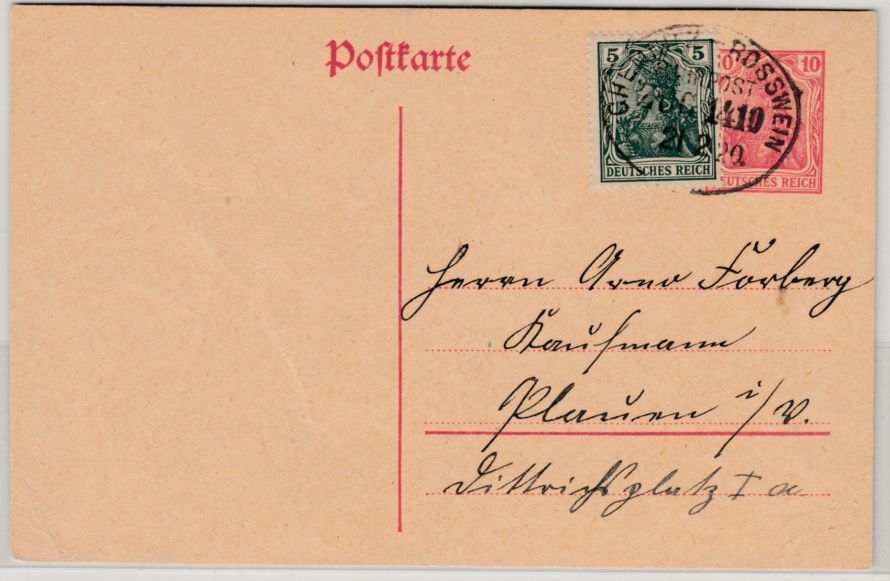 Postkarte
5 5
DEUTSCHES REICH
10
UTSCHES REICH
ROSSWEIN
POST
1410
21 2 20.
Herrn Arno Forberg
Kaufmann
Plauen i/V.
Dittrichsplatz I a